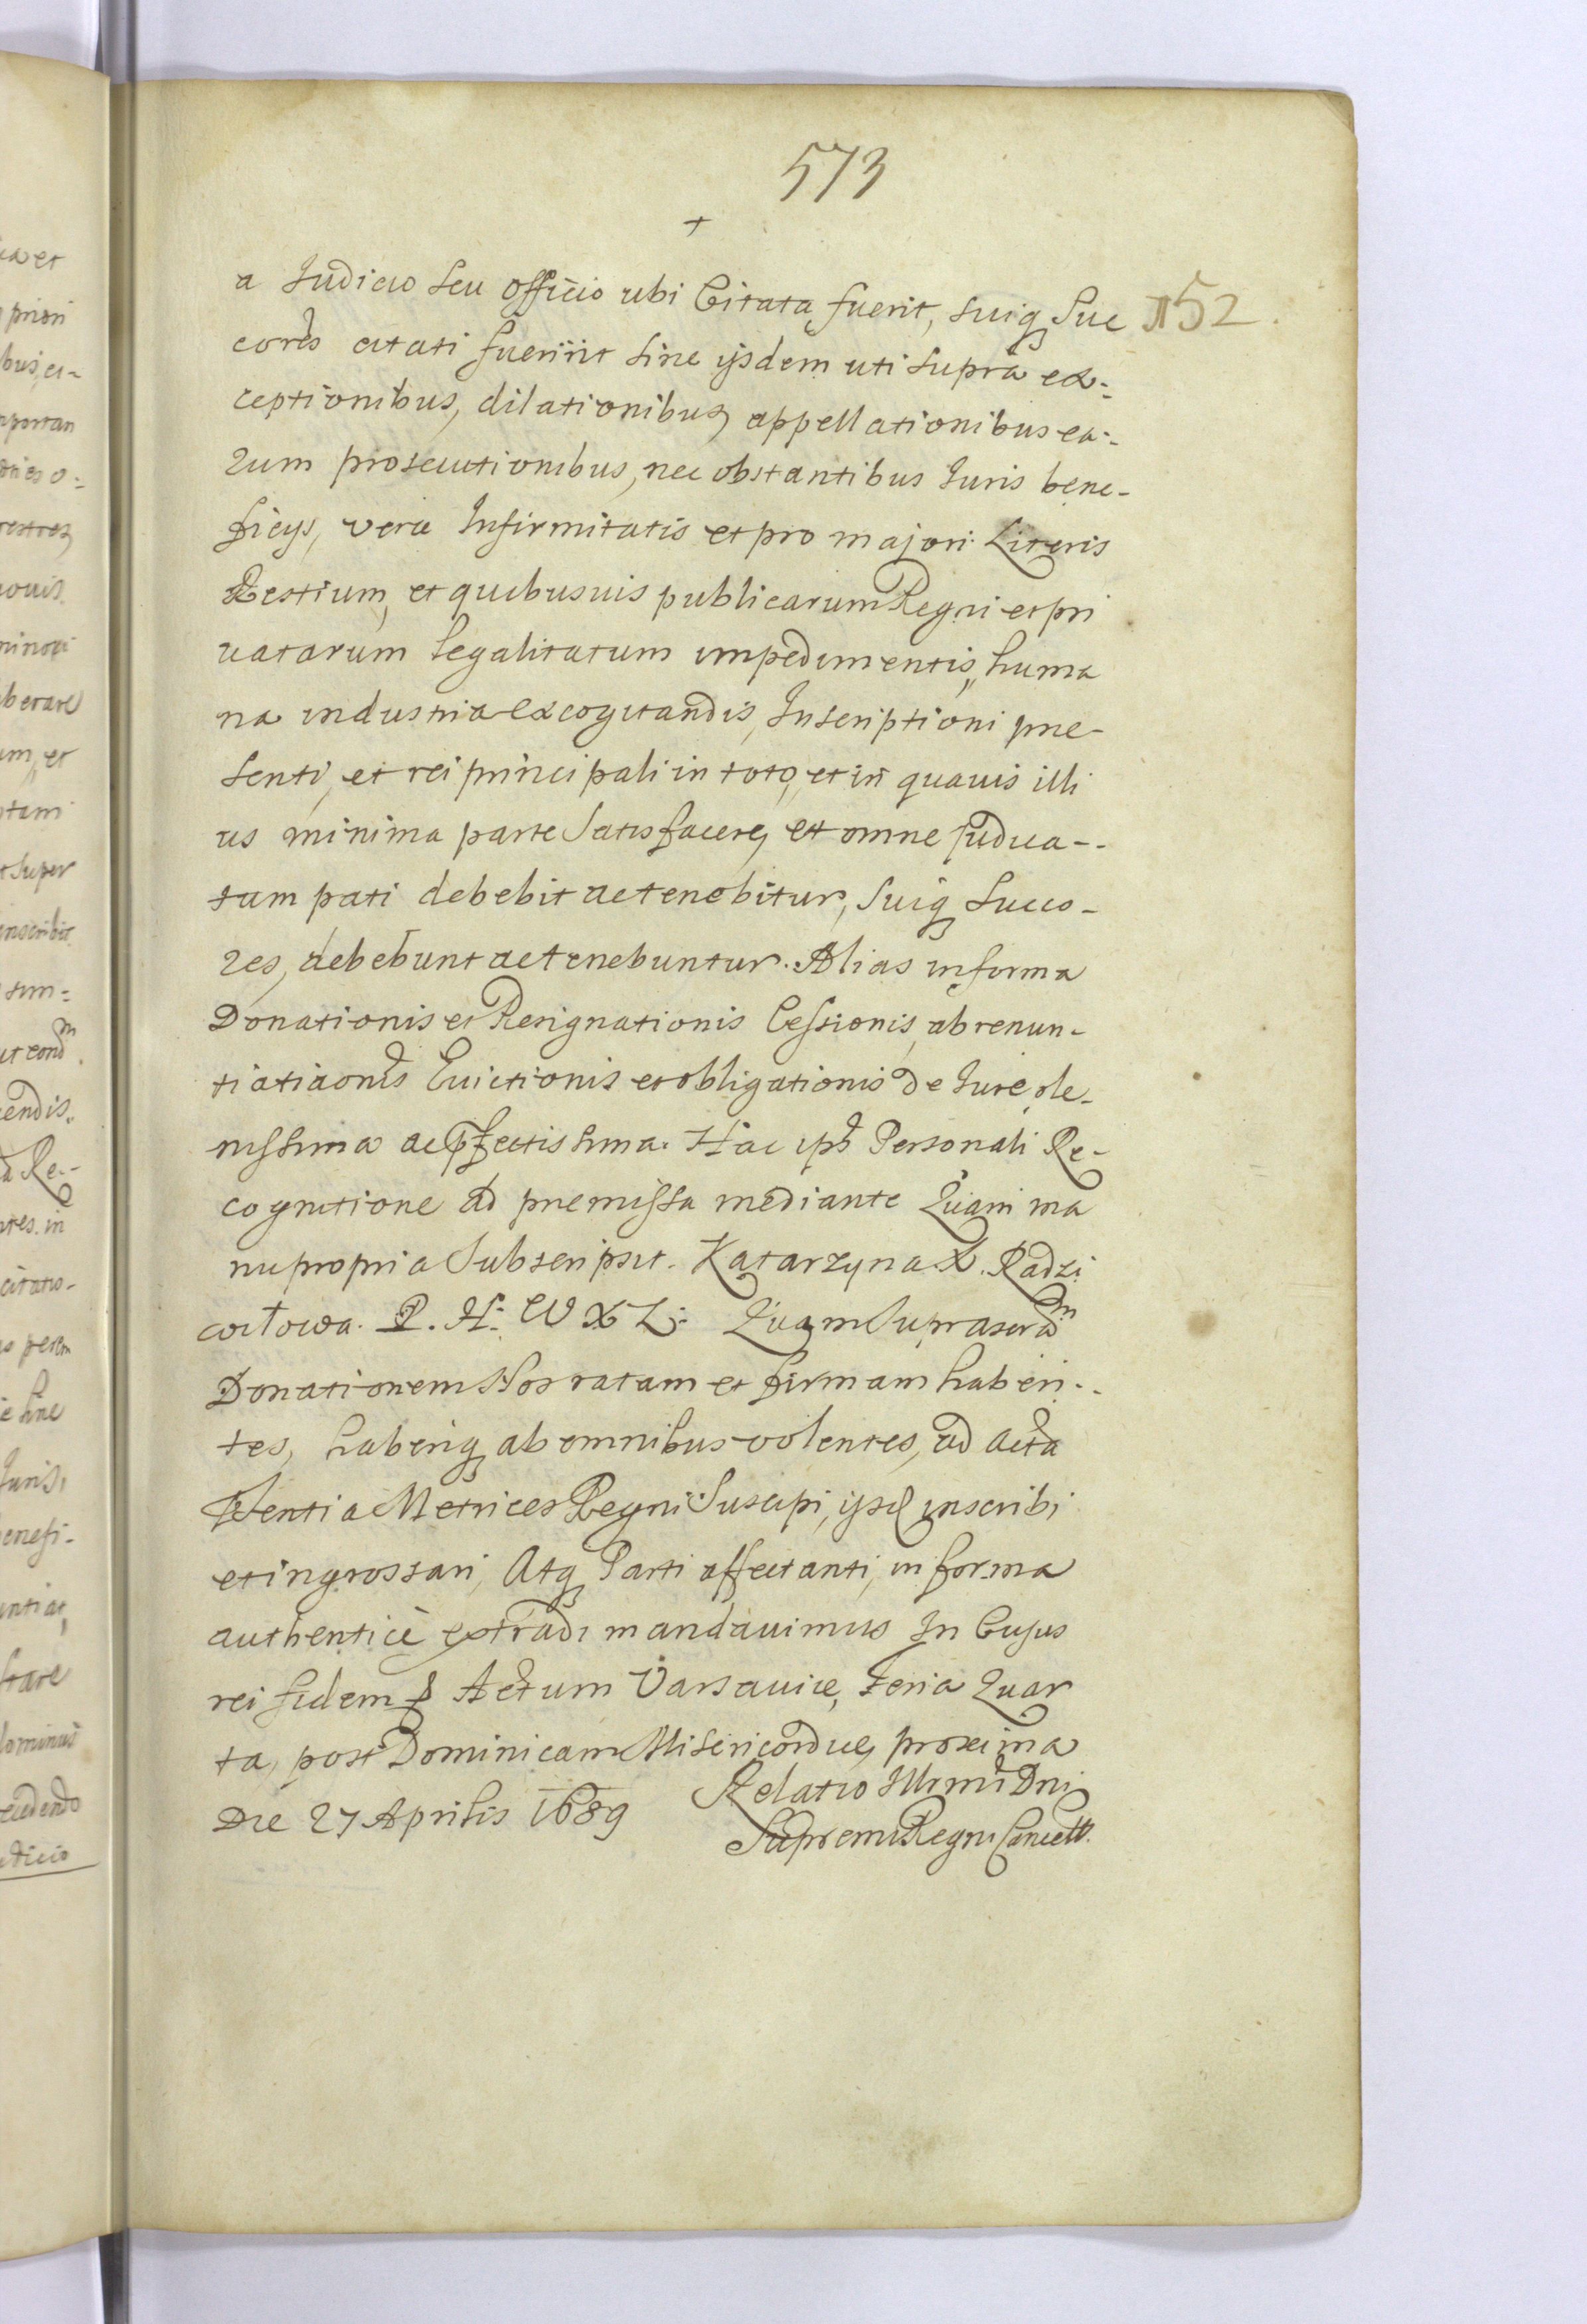 573
+
a Judicio seu officio ubi Citata fuerit, suiq Suc
152.
cores citati fuerint sine ijsdem uti supra ex-
ceptionibus, dilationibus, appellationibus ea-
rum prosecutionibus, nec obstantibus Juris bene-
ficijs, veræ Infirmitatis et pro majori Literis
Testium, et quibusuis publicarum Regni et pri
uatarum legalitatum impedimentis, huma
na industria excogitandis, Inscriptioni præ-
senti, et rei principali in toto, et in quauis illi
us minima parte Satisfacere, et omne judica--
tam pati debebit ac tenebitur, Suiq Succo-
res, debebunt ac tenebuntur. Alias in forma
Donationis et Resignationis Cessionis, abrenun-
tiatiaonis Euictionis et obligationis de Jure ple-
nissima ac pfectissima. Hac ips Personali Re-
cognitione ad præmissa mediante Quam ma
nu propria Subscripsit. Katarzyna X. Radzi
wiłowa. P. H. W X L: Quam Suprascram
Donationem Nos ratam et firmam haben--
tes, haberiq ab omnibus volentes, ad acta
Metrices Regni Suscipi, ijsq inscribi
et ingrossari, Atq Parti affectanti, in forma
authenticè extradi mandauimus In Cujus
rei fidem Actum Varsauiæ, Feria Quar
ta, post Dominicam Misericordiæ, proxima
Die 27 Aprilis 1689
Relatio Illrmi Dni
Supremi Regni Cancell.